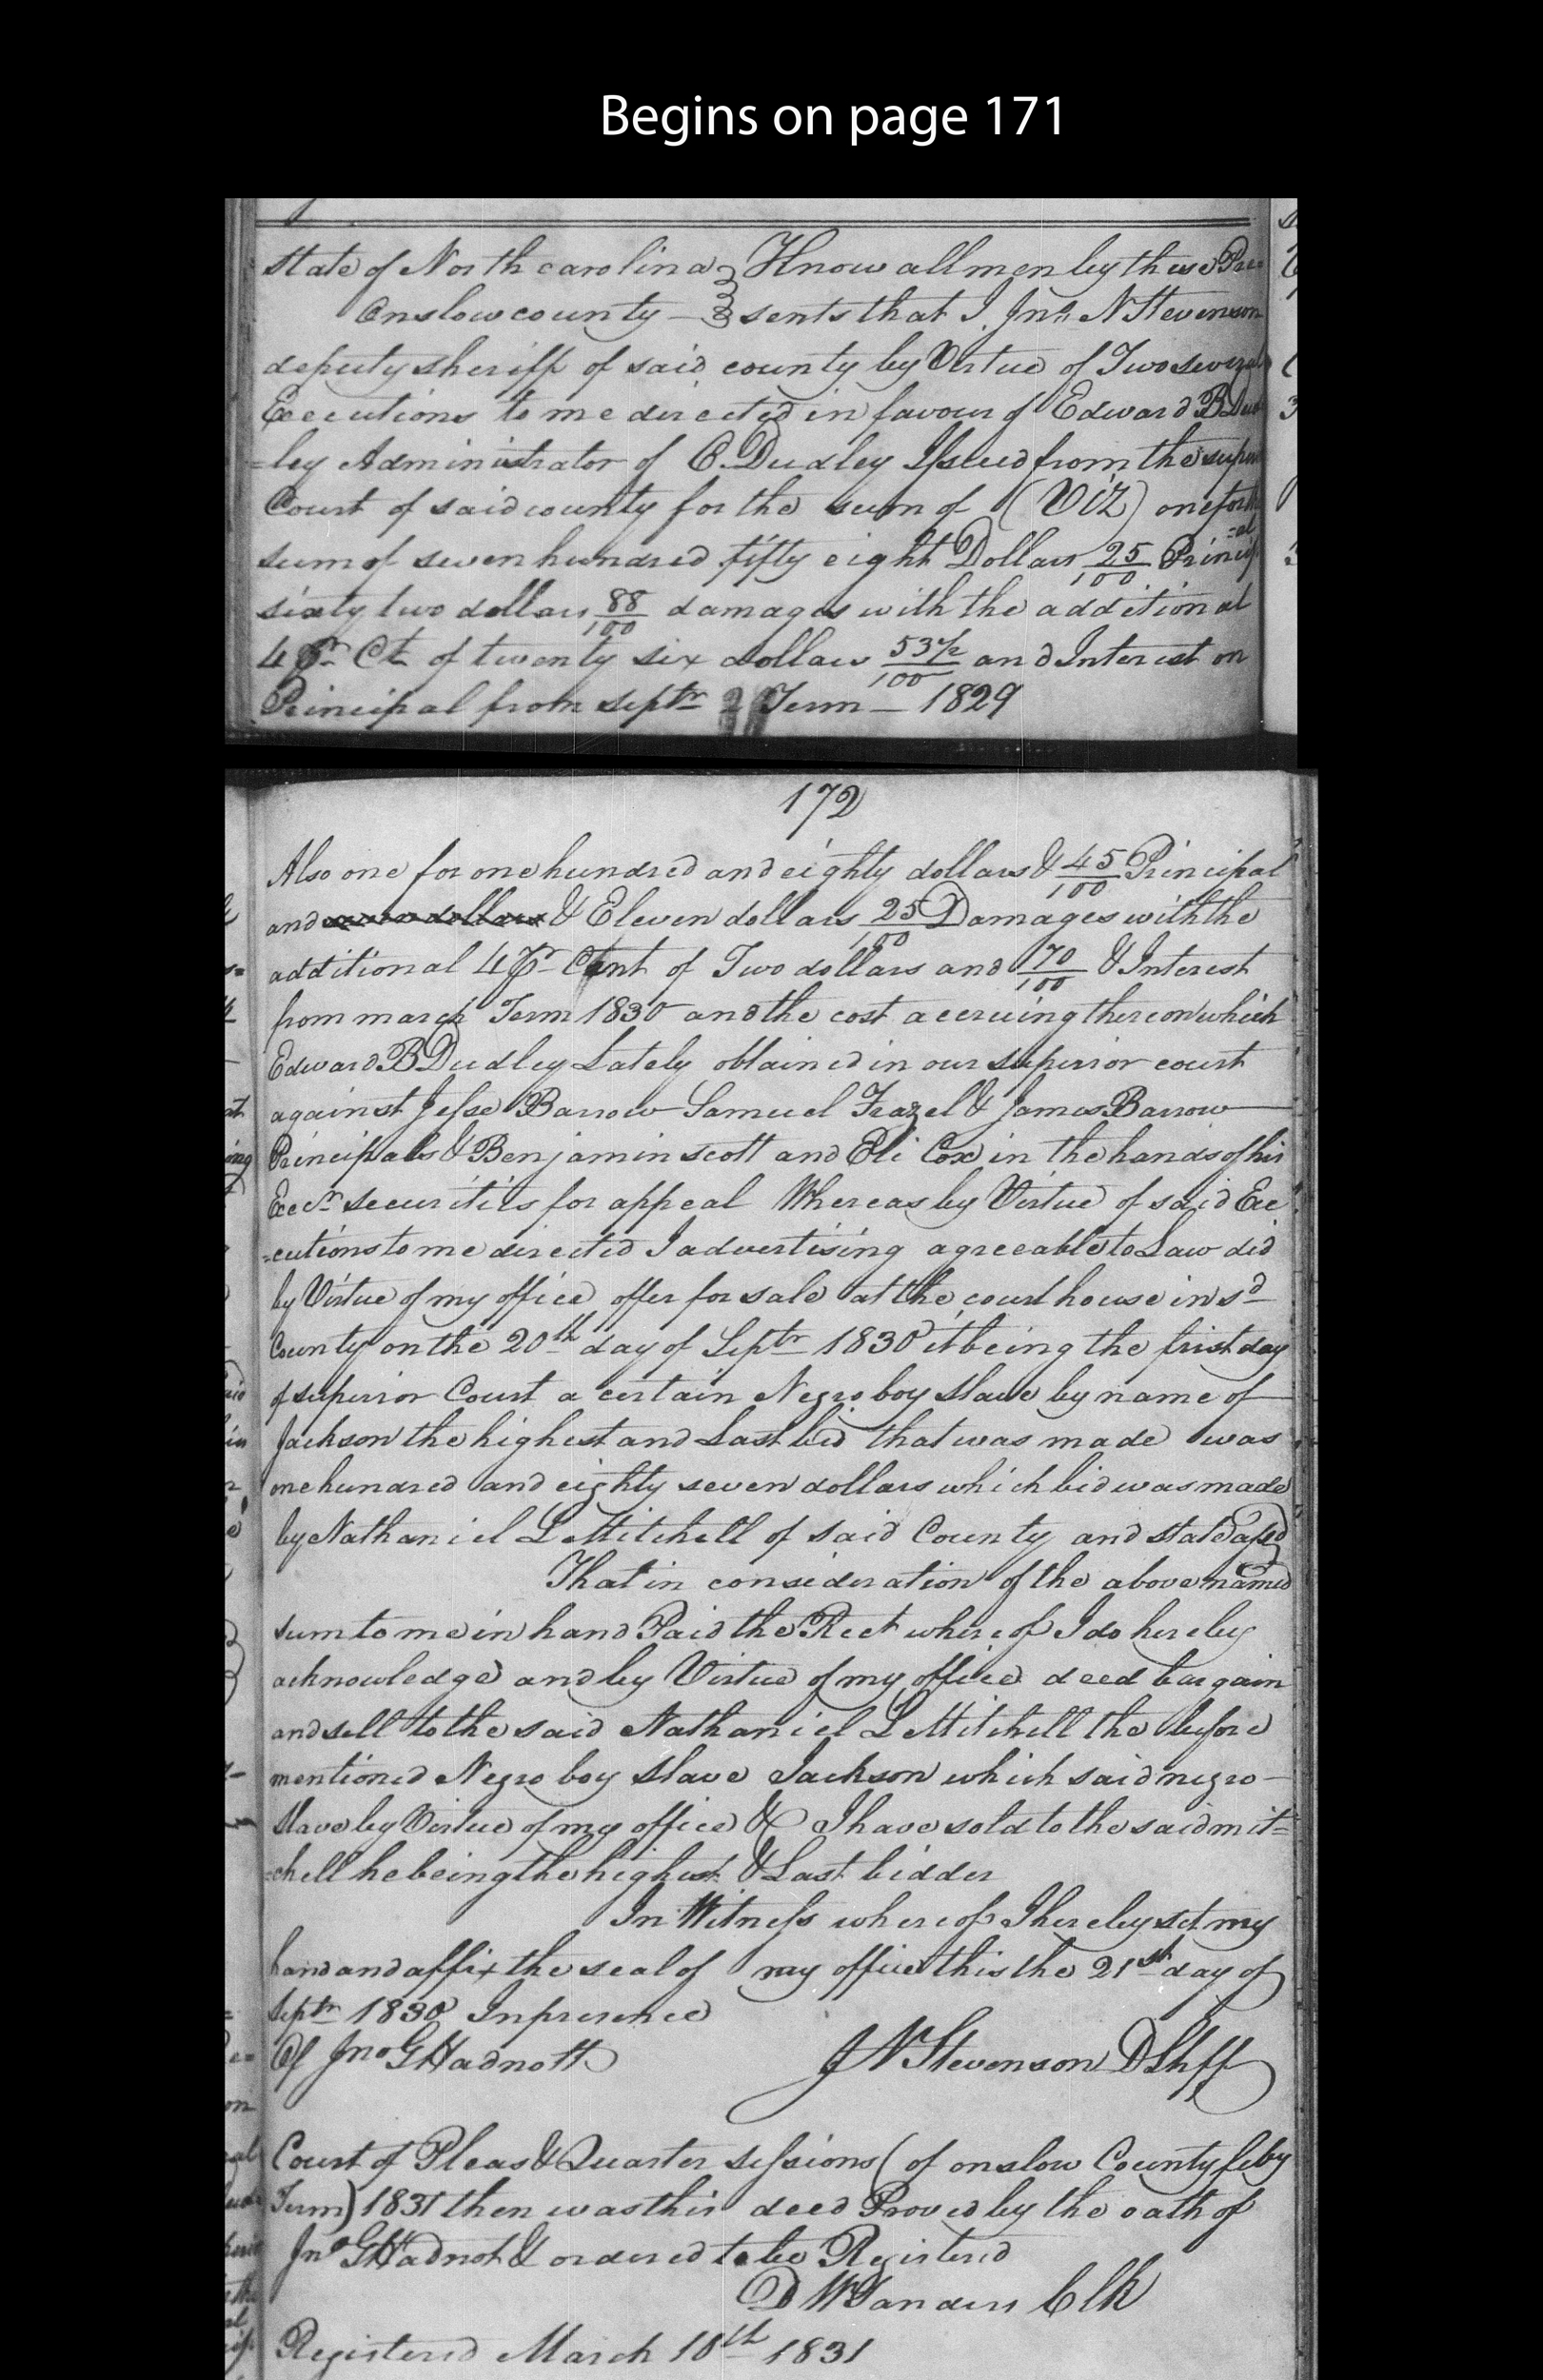 Begins on page 171
State of North carolina Know all men by these Pre
Onslow county — sents that I, Jno. N Stevenson
deputy sheriff of said county by Virtue of Two several
Executions to me directed in favour of Edward B Dud
=ley Administrator of C. Dudley Issued from the super
Court of said county for the sum of (Viz) one for th
sum of seven hundred fifty eight Dollars 25/100 Princip
=al
sixty two dollars 88/100 damages with the additional
4 Pr Ct of twenty six dollars 53 1/2/100 and Interest on
Principal from Septr Term — 1829
172
Also one for one hundred and eighty dollars & 45/100 Principal
and & Eleven dollars 25/100 Damages with the
additional 4 Pr Cent of Two dollars and 70/100 & Interest
from march Term 1830 and the cost accruing thereon which
Edward B Dudley Lately obtained in our superior court
against Jesse Barrow Samuel Frazel & James Barrow
Principals & Benjamin scott and Eli Cox in the hands of his
Excr securities for appeal Whereas by Virtue of said Exe
=cutions to me directed I advertising agreeable to Law did
by Virtue of my office offer for sale at the court house in sd
County on the 20th day of Septr 1830 it being the frist day
of superior Court a certain Negro boy Slave by name of
Jackson the highest and Last bid that was made was
one hundred and eighty seven dollars which bid was made
by Nathaniel L Mitchell of said County and state afsd
That in consideration of the above named
sum to me in hand Paid the Rect whereof I do hereby
acknowledge and by Virtue of my office deed bargain
and sell to the said Nathaniel L Mitchell the before
mentioned Negro boy Slave Jackson which said negro
Slave by Virtue of my office & I have sold to the said mit=
=chell he being the highest & Last bidder
In Witness whereof I hereby set my
hand and affix the seal of my office this the 21st day of
Septr 1830 In presence
Of Jno G Hadnott J N Stevenson D Shff
Court of Pleas & Quarter sessions (of onslow County feby
Term) 1831 then was this deed Proved by the oath of
Jno G Hadnot & ordered to be Registered
D W Sanders Clk
Registered March 10th 1831